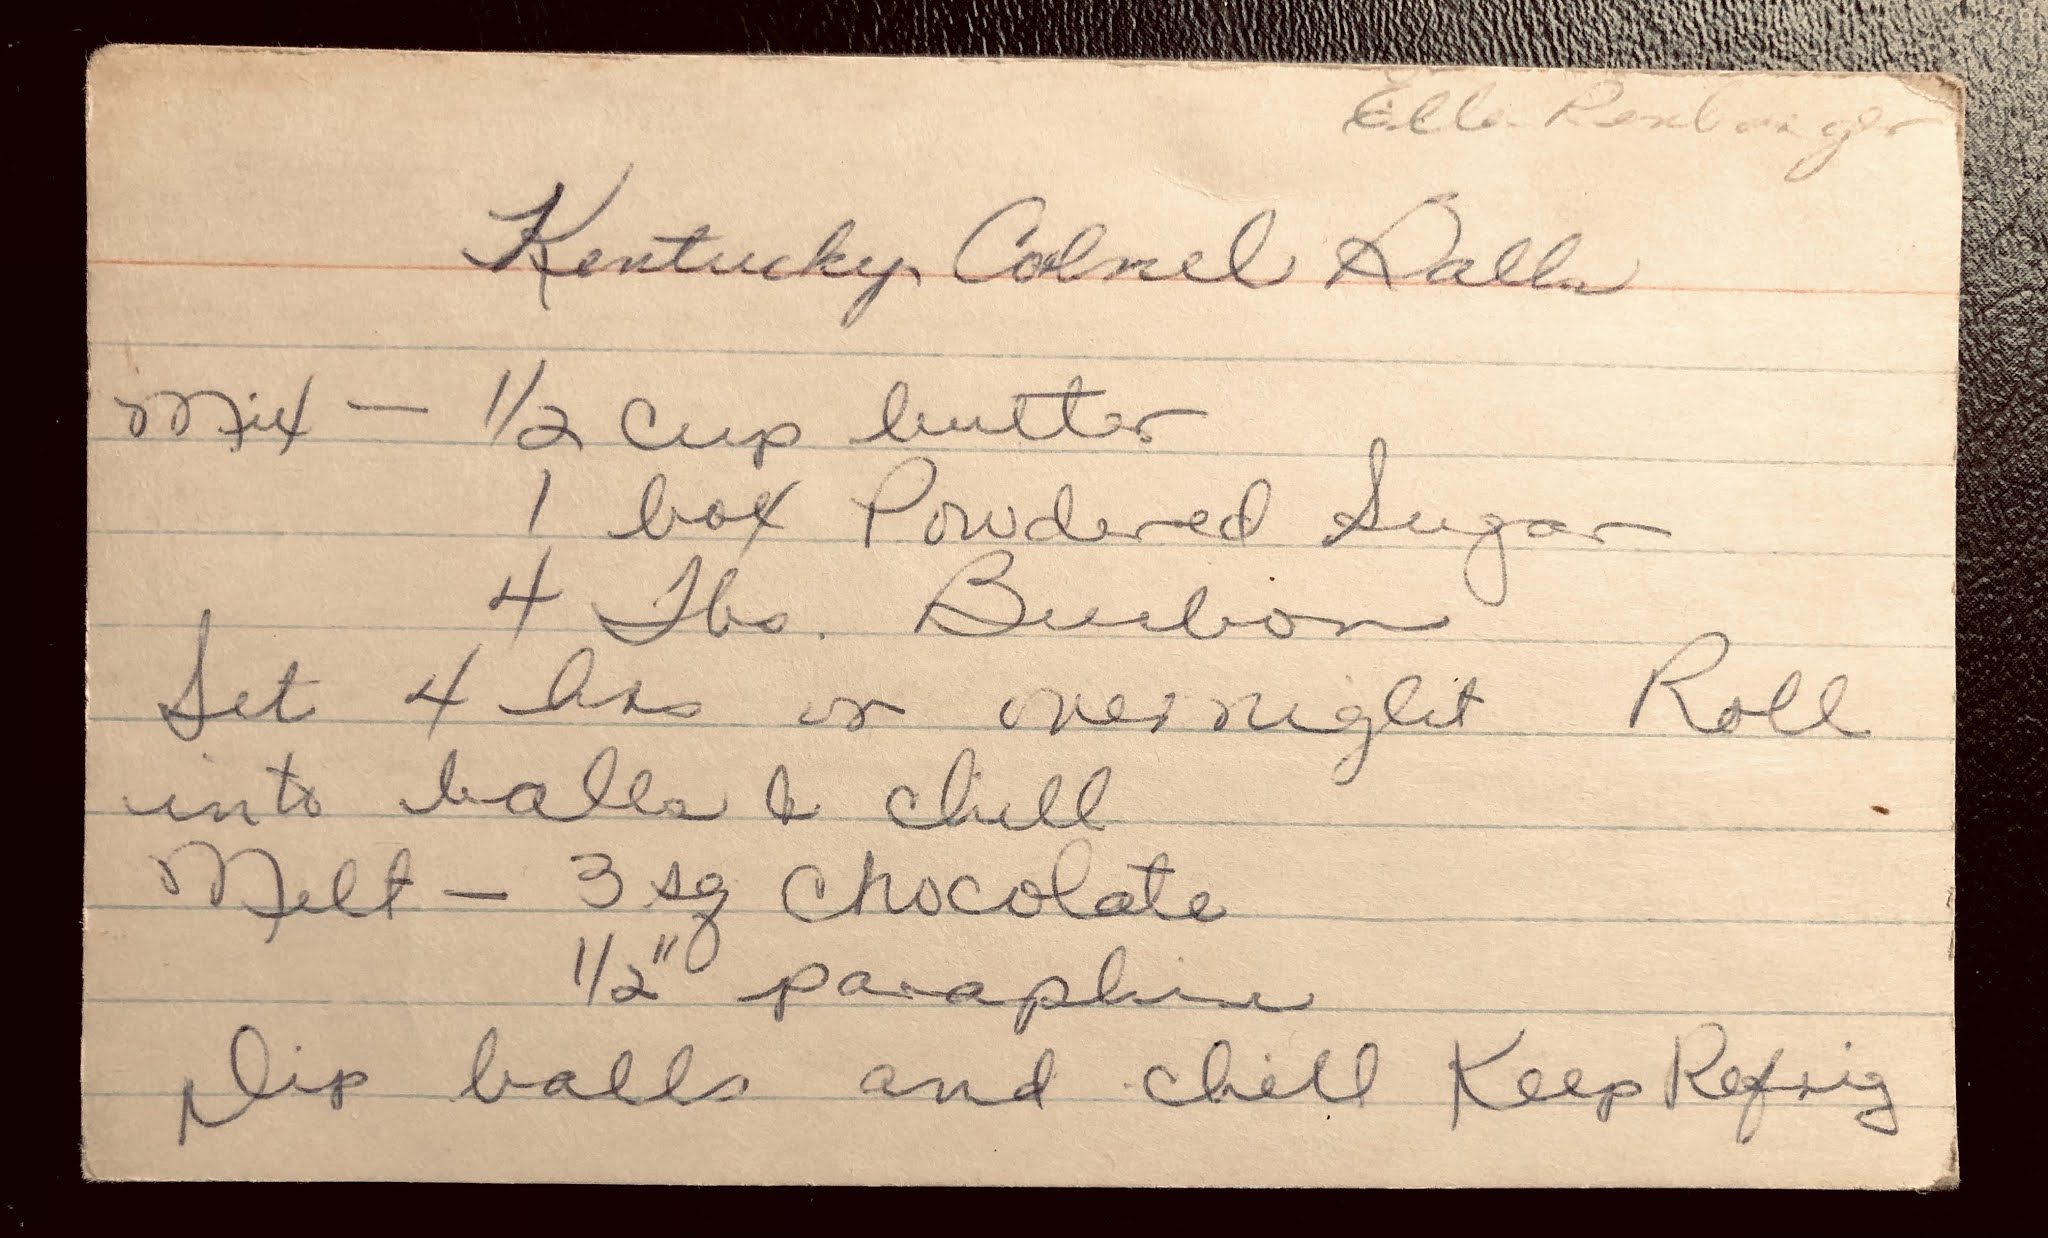 Ella
Kentucky Colonel Balls
Mix — 1/2 cup butter
1 box Powdered Sugar
4 Tbs. Burbon
Set 4 hrs or overnight Roll
into balls & chill
Melt — 3 sq chocolate
1/2" paraphine
Dip balls and chill Keep Refrig